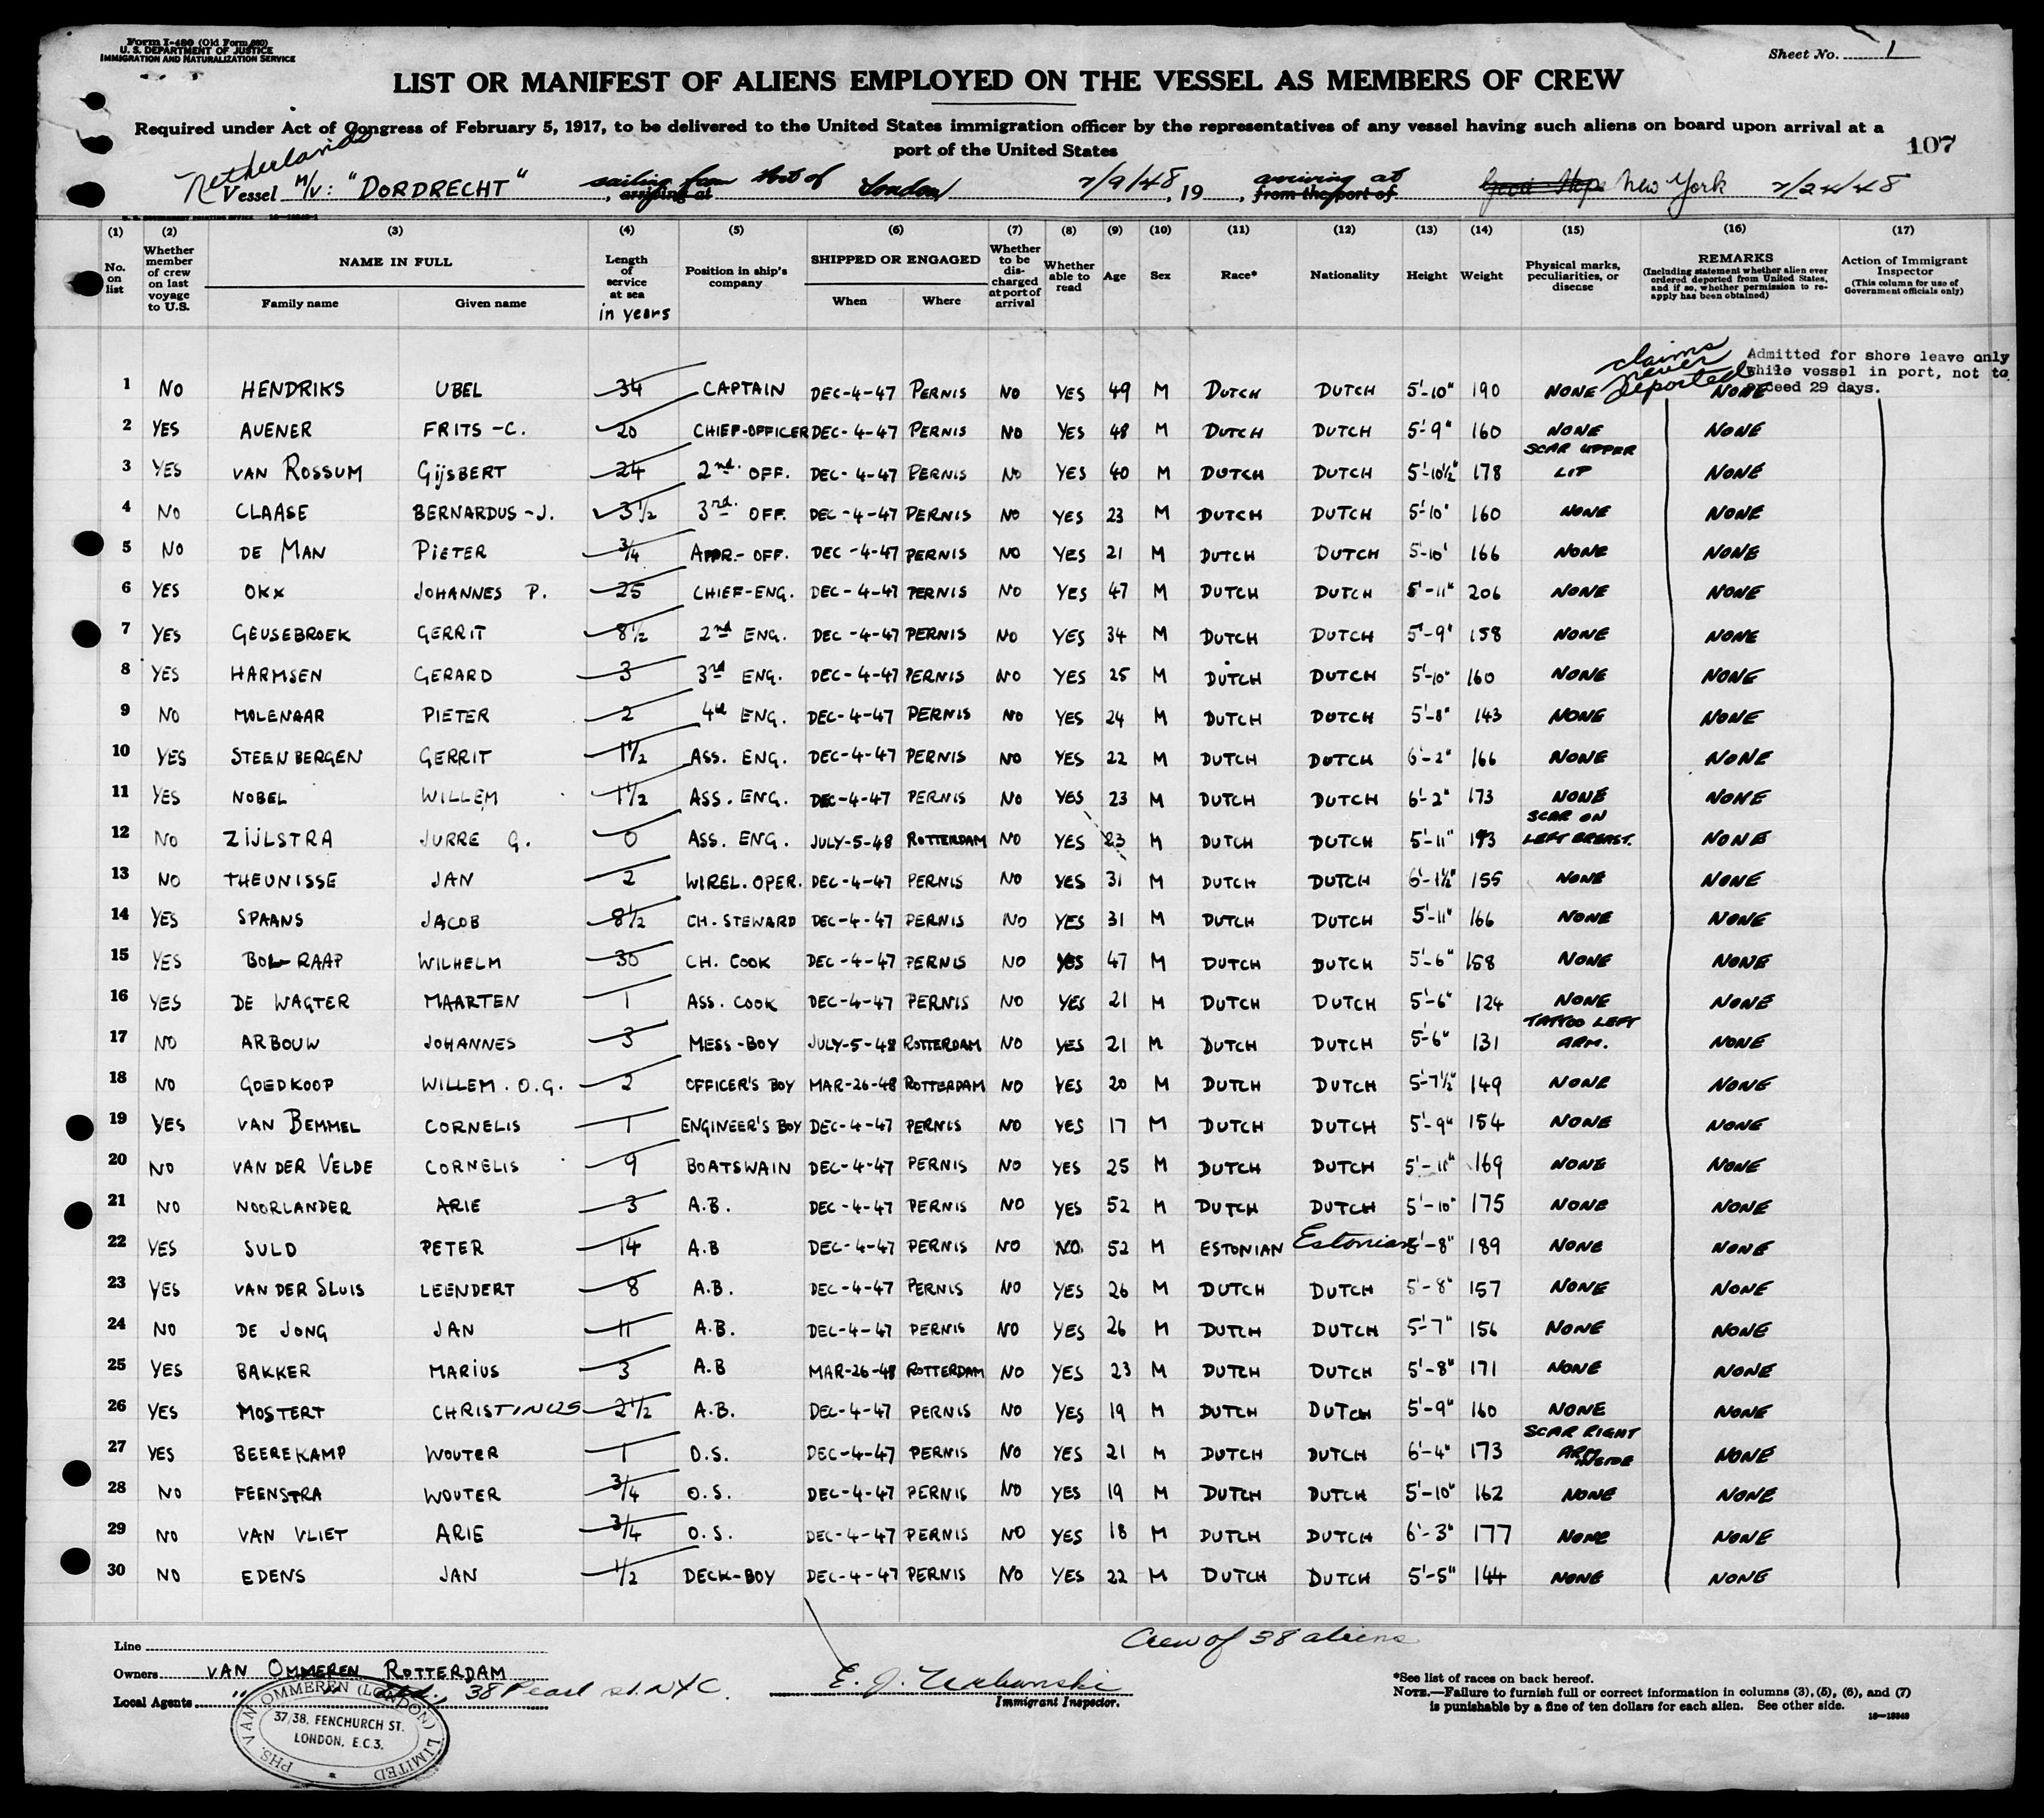 Form I-480 (Old Form 680)
U. S. DEPARTMENT OF JUSTICE
IMMIGRATION AND NATURALIZATION SERVICE
Sheet No. 1
LIST OR MANIFEST OF ALIENS EMPLOYED ON THE VESSEL AS MEMBERS OF CREW
Required under Act of Congress of February 5, 1917, to be delivered to the United States immigration officer by the representatives of any vessel having such aliens on board upon arrival at a
port of the United States
107
Netherlands
Vessel M/V: "DORDRECHT", sailing from Port of arriving at London 7/9/48, 19, arriving at from the port of Good Hope New York 7/24/48
(1) (2) (3) (4) (5) (6) (7) (8) (9) (10) (11) (12) (13) (14) (15) (16) (17)
No. on list
Whether member of crew on last voyage to U.S.
NAME IN FULL
Family name Given name
Length of service at sea in years
Position in ship's company
SHIPPED OR ENGAGED
When Where
Whether to be discharged at port of arrival
Whether able to read
Age Sex Race* Nationality Height Weight
Physical marks, peculiarities, or disease
REMARKS
(Including statement whether alien ever ordered deported from United States, and if so, whether permission to re-apply has been obtained)
Action of Immigrant Inspector
(This column for use of Government officials only)
claims never deported
Admitted for shore leave only
while vessel in port, not to
exceed 29 days.
1 NO HENDRIKS UBEL 34 CAPTAIN DEC-4-47 PERNIS NO YES 49 M DUTCH DUTCH 5'-10" 190 NONE NONE
2 YES AUENER FRITS-C. 20 CHIEF-OFFICER DEC-4-47 PERNIS NO YES 48 M DUTCH DUTCH 5'-9" 160 NONE NONE
3 YES VAN ROSSUM GijSBERT 24 2nd. OFF. DEC-4-47 PERNIS NO YES 40 M DUTCH DUTCH 5'-10½" 178 SCAR UPPER LIP NONE
4 NO CLAASE BERNARDUS-J. 3½ 3rd. OFF. DEC-4-47 PERNIS NO YES 23 M DUTCH DUTCH 5'-10' 160 NONE NONE
5 NO DE MAN PiETER 3/4 APPR.-OFF. DEC-4-47 PERNIS NO YES 21 M DUTCH DUTCH 5'-10' 166 NONE NONE
6 YES OKX JOHANNES P. 25 CHIEF-ENG. DEC-4-47 PERNIS NO YES 47 M DUTCH DUTCH 5'-11" 206 NONE NONE
7 YES GEUSEBROEK GERRIT 8½ 2nd ENG. DEC-4-47 PERNIS NO YES 34 M DUTCH DUTCH 5'-9" 158 NONE NONE
8 YES HARMSEN GERARD 3 3rd ENG. DEC-4-47 PERNIS NO YES 25 M DUTCH DUTCH 5'-10" 160 NONE NONE
9 NO MOLENAAR PIETER 2 4th ENG. DEC-4-47 PERNIS NO YES 24 M DUTCH DUTCH 5'-8" 143 NONE NONE
10 YES STEENBERGEN GERRIT 1½ ASS. ENG. DEC-4-47 PERNIS NO YES 22 M DUTCH DUTCH 6'-2" 166 NONE NONE
11 YES NOBEL WILLEM 1½ ASS. ENG. DEC-4-47 PERNIS NO YES 23 M DUTCH DUTCH 6'-2" 173 NONE NONE
12 NO ZIJLSTRA JURRE G. 0 ASS. ENG. JULY-5-48 ROTTERDAM NO YES 23 M DUTCH DUTCH 5'-11" 193 SCAR ON LEFT BREAST. NONE
13 NO THEUNISSE JAN 2 WIREL. OPER. DEC-4-47 PERNIS NO YES 31 M DUTCH DUTCH 6'-1½" 155 NONE NONE
14 YES SPAANS JACOB 8½ CH. STEWARD DEC-4-47 PERNIS NO YES 31 M DUTCH DUTCH 5'-11" 166 NONE NONE
15 YES BOL-RAAP WILHELM 30 CH. COOK DEC-4-47 PERNIS NO YES 47 M DUTCH DUTCH 5'-6" 158 NONE NONE
16 YES DE WAGTER MAARTEN 1 ASS. COOK DEC-4-47 PERNIS NO YES 21 M DUTCH DUTCH 5'-6" 124 NONE NONE
17 NO ARBOUW JOHANNES 3 MESS-BOY JULY-5-48 ROTTERDAM NO YES 21 M DUTCH DUTCH 5'-6" 131 TATTOO LEFT ARM. NONE
18 NO GOEDKOOP WILLEM. O.G. 2 OFFICER'S BOY MAR-26-48 ROTTERDAM NO YES 20 M DUTCH DUTCH 5'-7½" 149 NONE NONE
19 YES VAN BEMMEL CORNELIS 1 ENGINEER'S BOY DEC-4-47 PERNIS NO YES 17 M DUTCH DUTCH 5'-9" 154 NONE NONE
20 NO VAN DER VELDE CORNELIS 9 BOATSWAIN DEC-4-47 PERNIS NO YES 25 M DUTCH DUTCH 5'-11" 169 NONE NONE
21 NO NOORLANDER ARIE 3 A.B. DEC-4-47 PERNIS NO YES 52 M DUTCH DUTCH 5'-10" 175 NONE NONE
22 YES SULD PETER 14 A.B DEC-4-47 PERNIS NO NO. 52 M ESTONIAN Estonian 5'-8" 189 NONE NONE
23 YES VAN DER SLUIS LEENDERT 8 A.B. DEC-4-47 PERNIS NO YES 26 M DUTCH DUTCH 5'-8" 157 NONE NONE
24 NO DE JONG JAN 11 A.B. DEC-4-47 PERNIS NO YES 26 M DUTCH DUTCH 5'-7" 156 NONE NONE
25 YES BAKKER MARIUS 3 A.B MAR-26-48 ROTTERDAM NO YES 23 M DUTCH DUTCH 5'-8" 171 NONE NONE
26 YES MOSTERT CHRISTINUS 2½ A.B. DEC-4-47 PERNIS NO YES 19 M DUTCH DUTCH 5'-9" 160 NONE NONE
27 YES BEEREKAMP WOUTER 1 O.S. DEC-4-47 PERNIS NO YES 21 M DUTCH DUTCH 6'-4" 173 SCAR RIGHT ARM INSIDE NONE
28 NO FEENSTRA WOUTER 3/4 O.S. DEC-4-47 PERNIS NO YES 19 M DUTCH DUTCH 5'-10" 162 NONE NONE
29 NO VAN VLIET ARIE 3/4 O.S. DEC-4-47 PERNIS NO YES 18 M DUTCH DUTCH 6'-3" 177 NONE NONE
30 NO EDENS JAN 1/2 DECK-BOY DEC-4-47 PERNIS NO YES 22 M DUTCH DUTCH 5'-5" 144 NONE NONE
Crew of 38 aliens
Line
Owners VAN OMMEREN ROTTERDAM
Local Agents " " 38 Pearl st. NYC.
PHS. VAN OMMEREN (LONDON) LIMITED
37/38, FENCHURCH ST.
LONDON, E.C.3.
E. J.
Immigrant Inspector.
*See list of races on back hereof.
NOTE.—Failure to furnish full or correct information in columns (3), (5), (6), and (7)
is punishable by a fine of ten dollars for each alien. See other side.